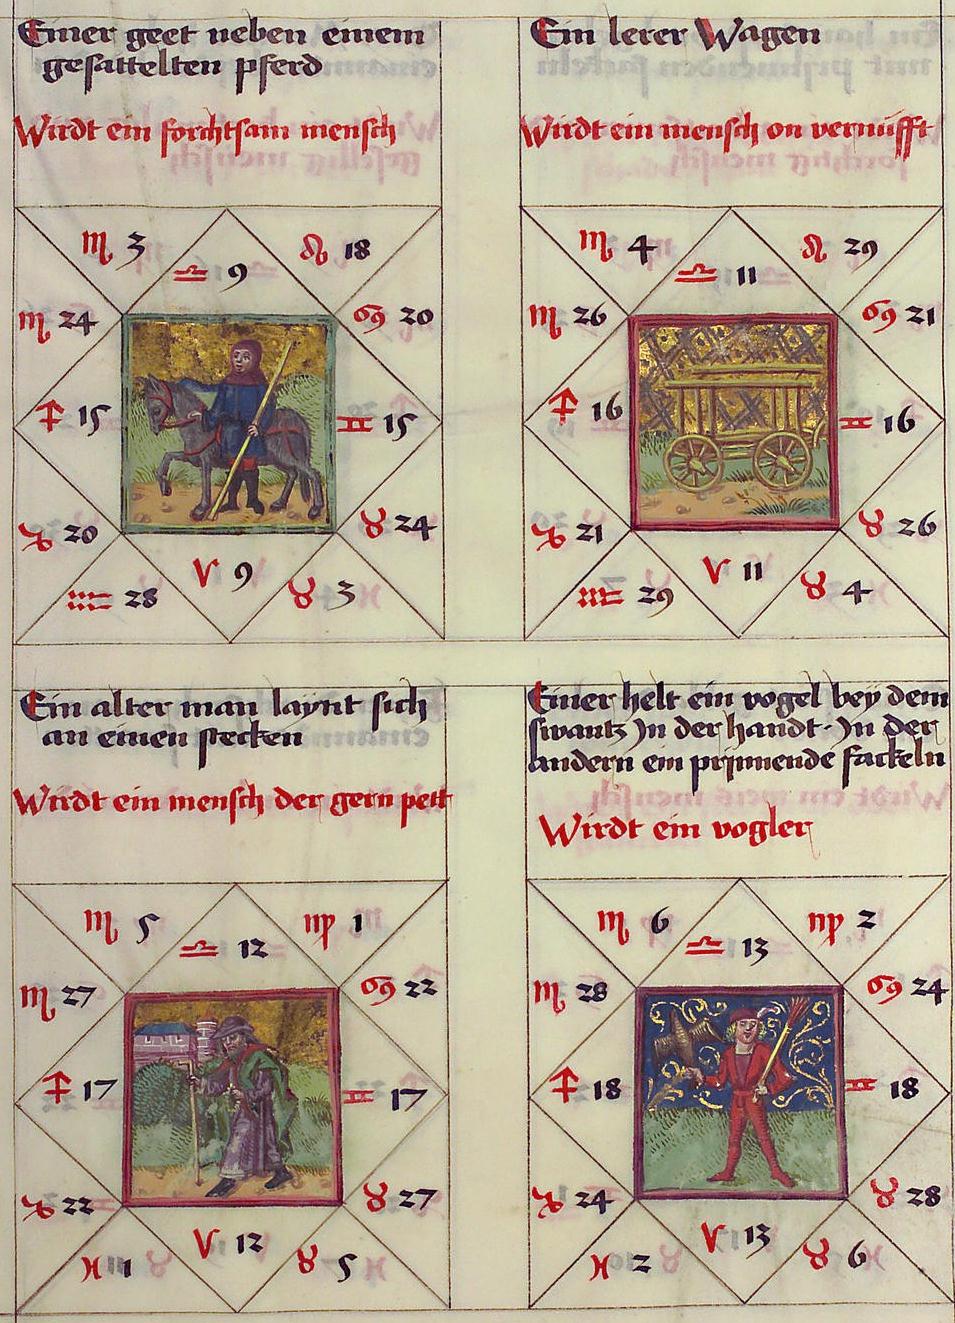 Einer geet neben einem
gesattelten pferd
Wirdt ein forchtsam mensch
♏ 3
♎ 9
♌ 18
♏ 24
♋ 20
♐ 15
♊ 15
♑ 20
♉ 24
♒ 28
♈ 9
♉ 3
Ein lerer Wagen
Wirdt ein mensch on vernufft
♏ 4
♎ 11
♌ 29
♏ 26
♋ 21
♐ 16
♊ 16
♑ 21
♉ 26
♒ 29
♈ 11
♉ 4
Ein alter man laynt sich
an einen stecken
Wirdt ein mensch der gern pett
♏ 5
♎ 12
♍ 1
♏ 27
♋ 22
♐ 17
♊ 17
♑ 22
♉ 27
♓ 1
♈ 12
♉ 5
Einer helt ein vogel bey dem
swantz Jn der handt · Jn der
andern ein prinnende fackeln
Wirdt ein vogler
♏ 6
♎ 13
♍ 2
♏ 28
♋ 24
♐ 18
♊ 18
♑ 24
♉ 28
♓ 2
♈ 13
♉ 6